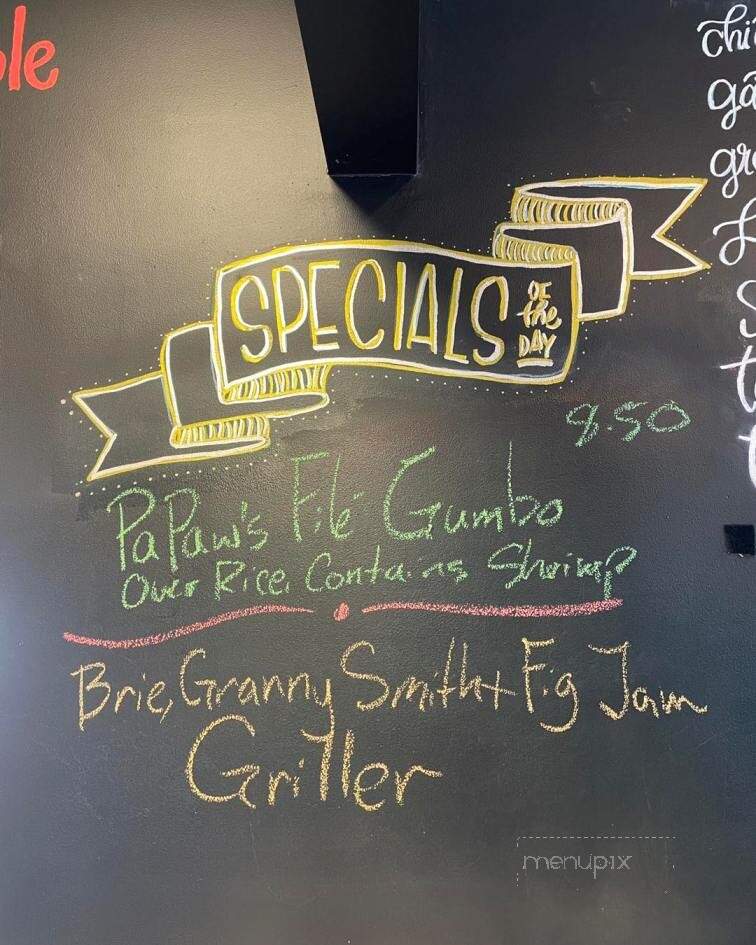 SPECIALS
OF
the
DAY
8.50
PaPaw's Filé Gumbo
Over Rice, Contains Shrimp
Brie, Granny Smith + Fig Jam
Griller
menupix